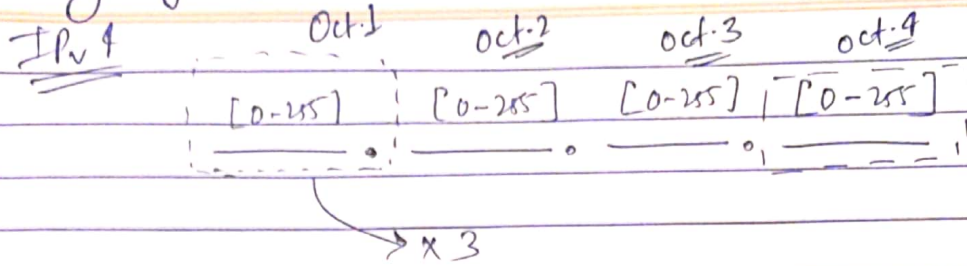 IPv4 Oct.1 Oct.2 Oct.3 Oct.4
[0-255] [0-255] [0-255] [0-255]
. . .
x 3